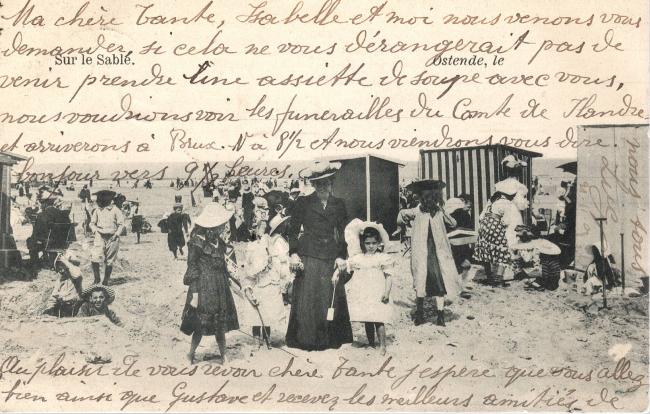 Ma chère Tante, Isabelle et moi nous venons vous
demander, si cela ne vous dérangerait pas de
Sur le Sable.
Ostende, le
venir prendre une assiette de soupe avec vous,
nous voudrions voir les funerailles du Comte de Flandre
et arriverons à Brux. N à 8½ et nous viendrons vous dire
bonjour vers 9½ heures.
Au plaisir de vous revoir chère Tante j'espère que vous allez
bien ainsi que Gustave et recevez les meilleurs amitiés de
nous tous